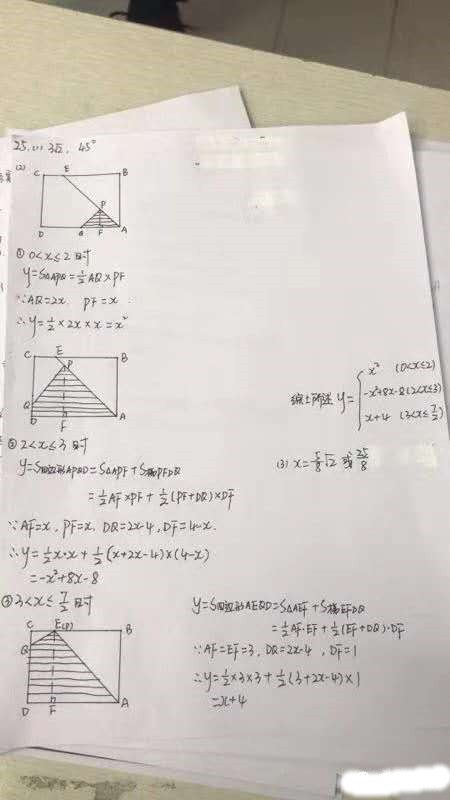 25. (1) 3√2, 45°
(2)
C E B
P
D Q F A
① 0<x≤2时
y=S△APQ=½AQ×PF
∵AQ=2x PF=x
∴y=½×2x×x=x²
C E B
P
Q
D F A
② 2<x≤3时
y=S四边形APQD=S△APF+S梯PFDQ
=½AF×PF+½(PF+DQ)×DF
∵AF=x, PF=x, DQ=2x-4, DF=4-x.
∴y=½x·x+½(x+2x-4)×(4-x)
=-x²+8x-8
③ 3<x≤7/2时
C E(P) B
Q
D F A
y=S四边形AEQD=S△AEF+S梯EFDQ
=½AF·EF+½(EF+DQ)·DF
∵AF=EF=3, DQ=2x-4, DF=1
∴y=½×3×3+½(3+2x-4)×1
=x+4
综上所述 y={
x² (0<x≤2)
-x²+8x-8 (2<x≤3)
x+4 (3<x≤7/2)
(3) x=5/8√2 或 25/8